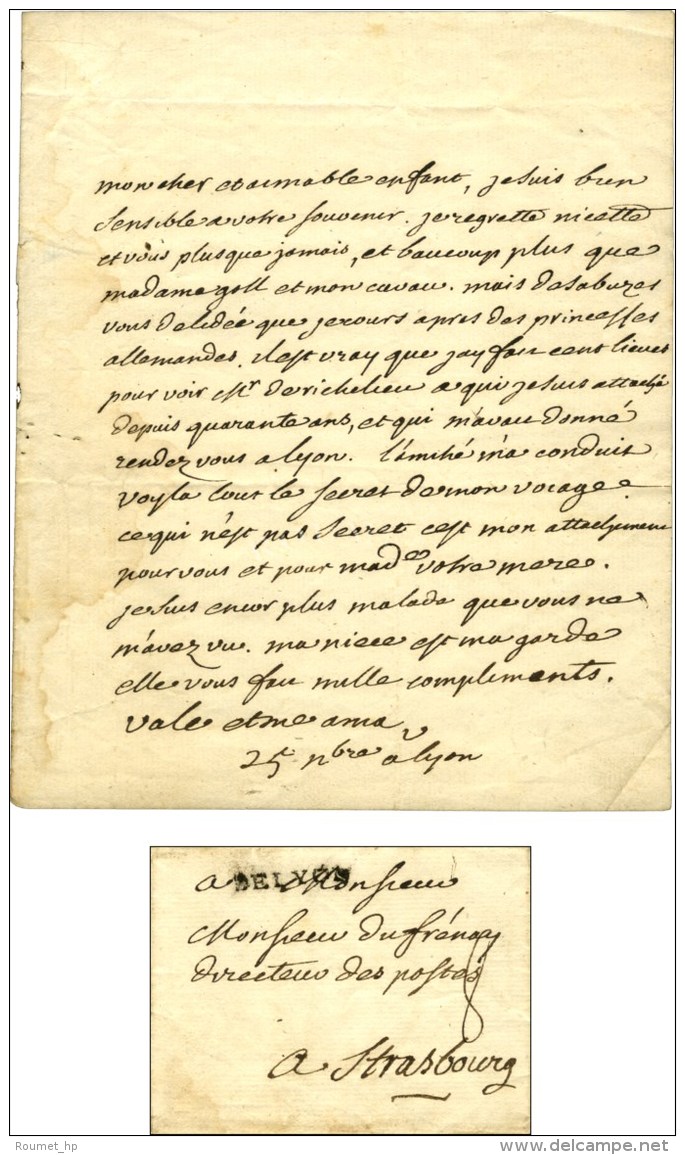 mon cher et aimable enfant, je suis bien
sensible a votre souvenir. je regrette nicette
et vous plus que jamais, et baucoup plus que
madame goll et mon cavau. mais desabuzez
vous de lidée que je cours apres des princesses
allemandes. il est vray que jay fait cent lieues
pour voir Mr de richelieu a qui je suis attaché
depuis quarante ans, et qui m'avait donné
rendez vous a lyon. l'amitié m'a conduit
voyla tout le secret de mon voiage.
ce qui n'est pas secret c'est mon attachement
pour vous et pour made votre mere.
je suis encor plus malade que vous ne
m'avez vu. ma niece est ma garde
elle vous fait mille compliments.
vale et me ama
25 nbre a lyon V
DE LYON
a Monsieur
Monsieur du frénay
directeur des postes
8
a Strasbourg
Roumet_hp
www.delcampe.net